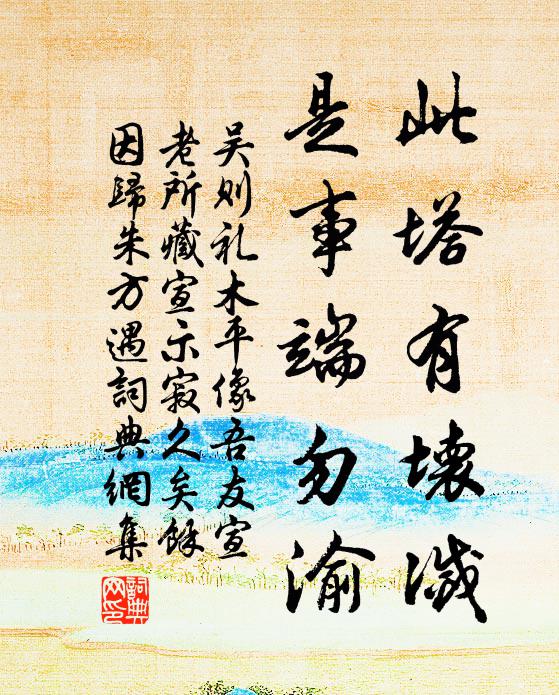 此塔有壞滅
是事端勿渝
吴则礼木平像吾友宣
老所藏宣示寂久矣餘
因歸朱方遇詞典網集
詞典网印